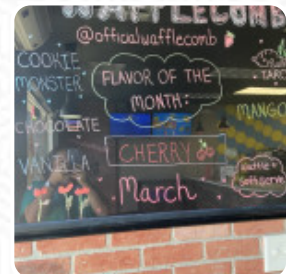 WAFFLECOMB
@officialwafflecomb
COOKIE
MONSTER
CHOCOLATE
VANILLA
FLAVOR OF THE
MONTH:
CHERRY
March
TARO
MANGO
Waffle +
Soft Serve